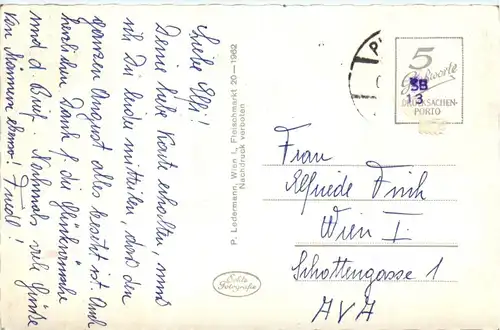 Liebe Elfi!
Deine liebe Karte erhalten, muß
ich Dir leider mitteilen, daß der
ganzen August alles besetzt ist. Auch
herzlichen Dank f. die Glückwünsche
und d. Brief. Nochmals viele Grüße
von Mimmi Friedl!
P. Ledermann, Wien I., Fleischmarkt 20—1962
Nachdruck verboten
Echte
Fotografie
P
5
Grußworte
SB
13
DRUCKSACHEN-
PORTO
Frau
Elfriede Frich
Wien I.
Schottengasse 1
AVA